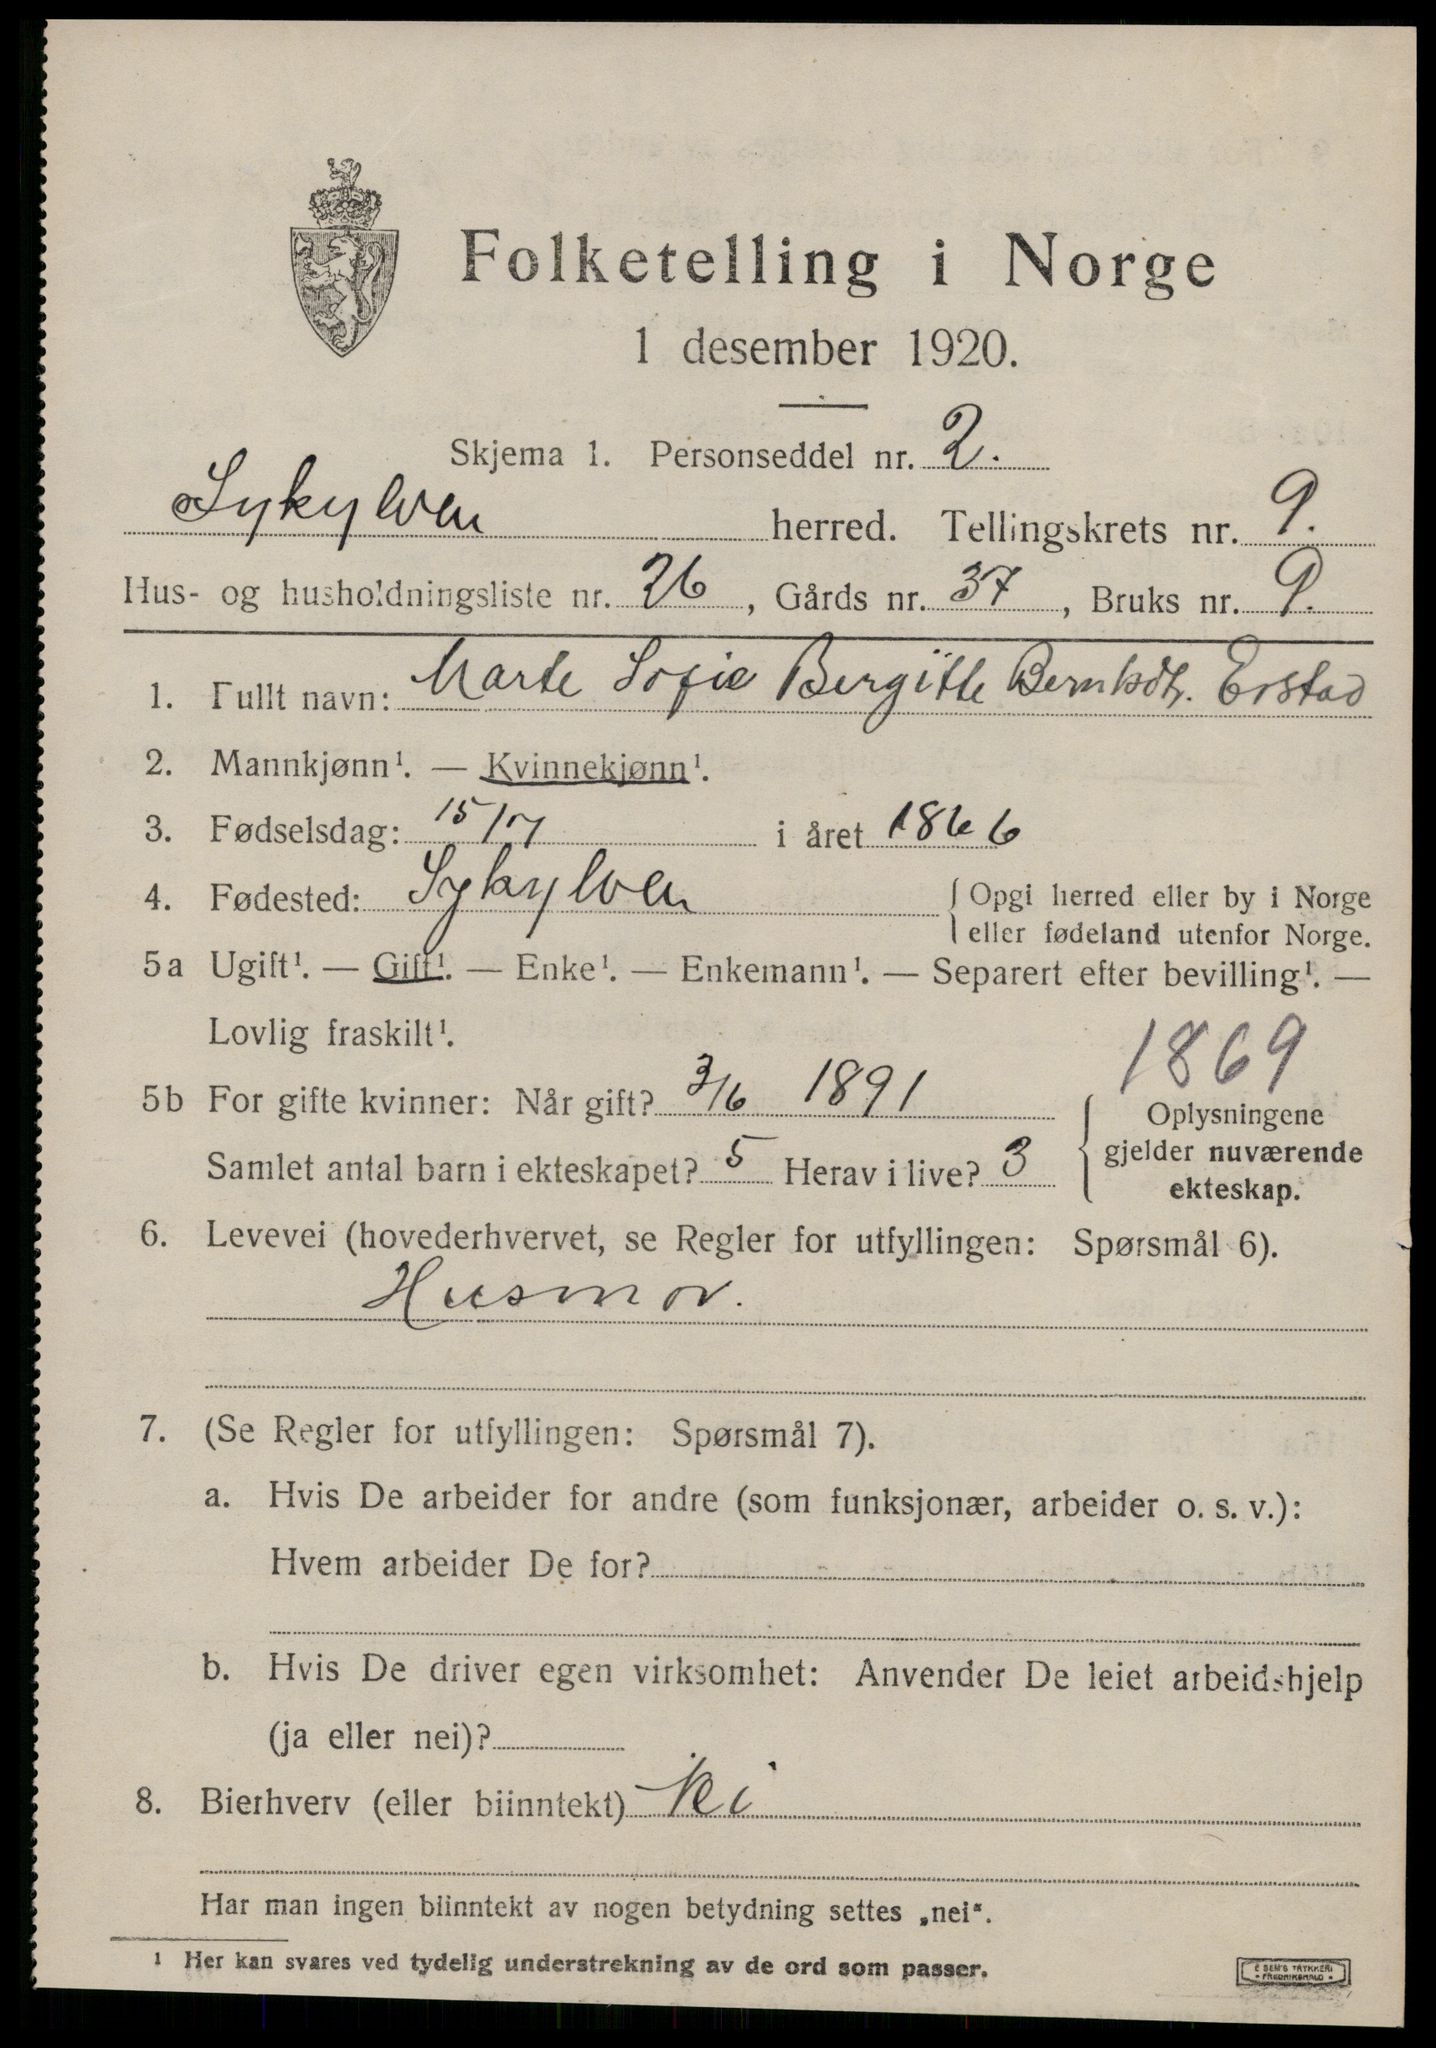 Folketelling i Norge
1 desember 1920.
Skjema 1. Personseddel nr. 2.
Sykylven herred. Tellingskrets nr. 9.
Hus- og husholdningsliste nr. 26, Gårds nr. 37, Bruks nr. 9.
1. Fullt navn: Marte Sofie Bergitte Bernhdtr. Erstad
2. Mannkjønn¹. — Kvinnekjønn¹.
3. Fødselsdag: 15/ i året 1866
4. Fødested: Sykylven { Opgi herred eller by i Norge
eller fødeland utenfor Norge.
5a Ugift¹. — Gift¹. — Enke¹. — Enkemann¹. — Separert efter bevilling¹. —
Lovlig fraskilt¹.
1869
5b For gifte kvinner: Når gift? 3/6 1891
Samlet antal barn i ekteskapet? 5 Herav i live? 3
{ Oplysningene
gjelder nuværende
ekteskap.
6. Levevei (hovederhvervet, se Regler for utfyllingen: Spørsmål 6).
Husmor.
7. (Se Regler for utfyllingen: Spørsmål 7).
a. Hvis De arbeider for andre (som funksjonær, arbeider o. s. v.):
Hvem arbeider De for?
b. Hvis De driver egen virksomhet: Anvender De leiet arbeidshjelp
(ja eller nei)?
8. Bierhverv (eller biinntekt) Nei
Har man ingen biinntekt av nogen betydning settes „nei“.
1 Her kan svares ved tydelig understrekning av de ord som passer.
E SEM'S TRYKKERI
FREDRIKSHALD